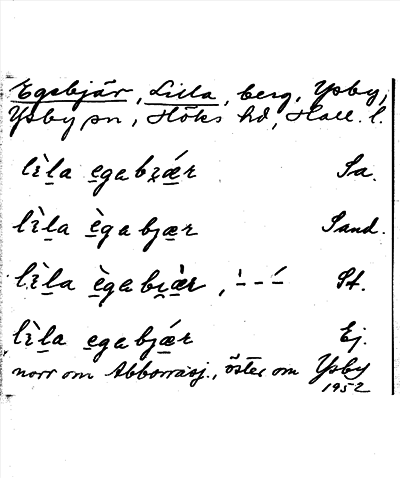 Egebjär, Lilla, berg, Ysby,
Ysby sn, Höks hd, Hall. l.
lìla egabjǽr Sa.
lìla ègabjær Sand.
lìla ègabjæ̀r, St.
lìla egabjǽr Ej.
norr om Abborrasj., öster om Ysby
1952